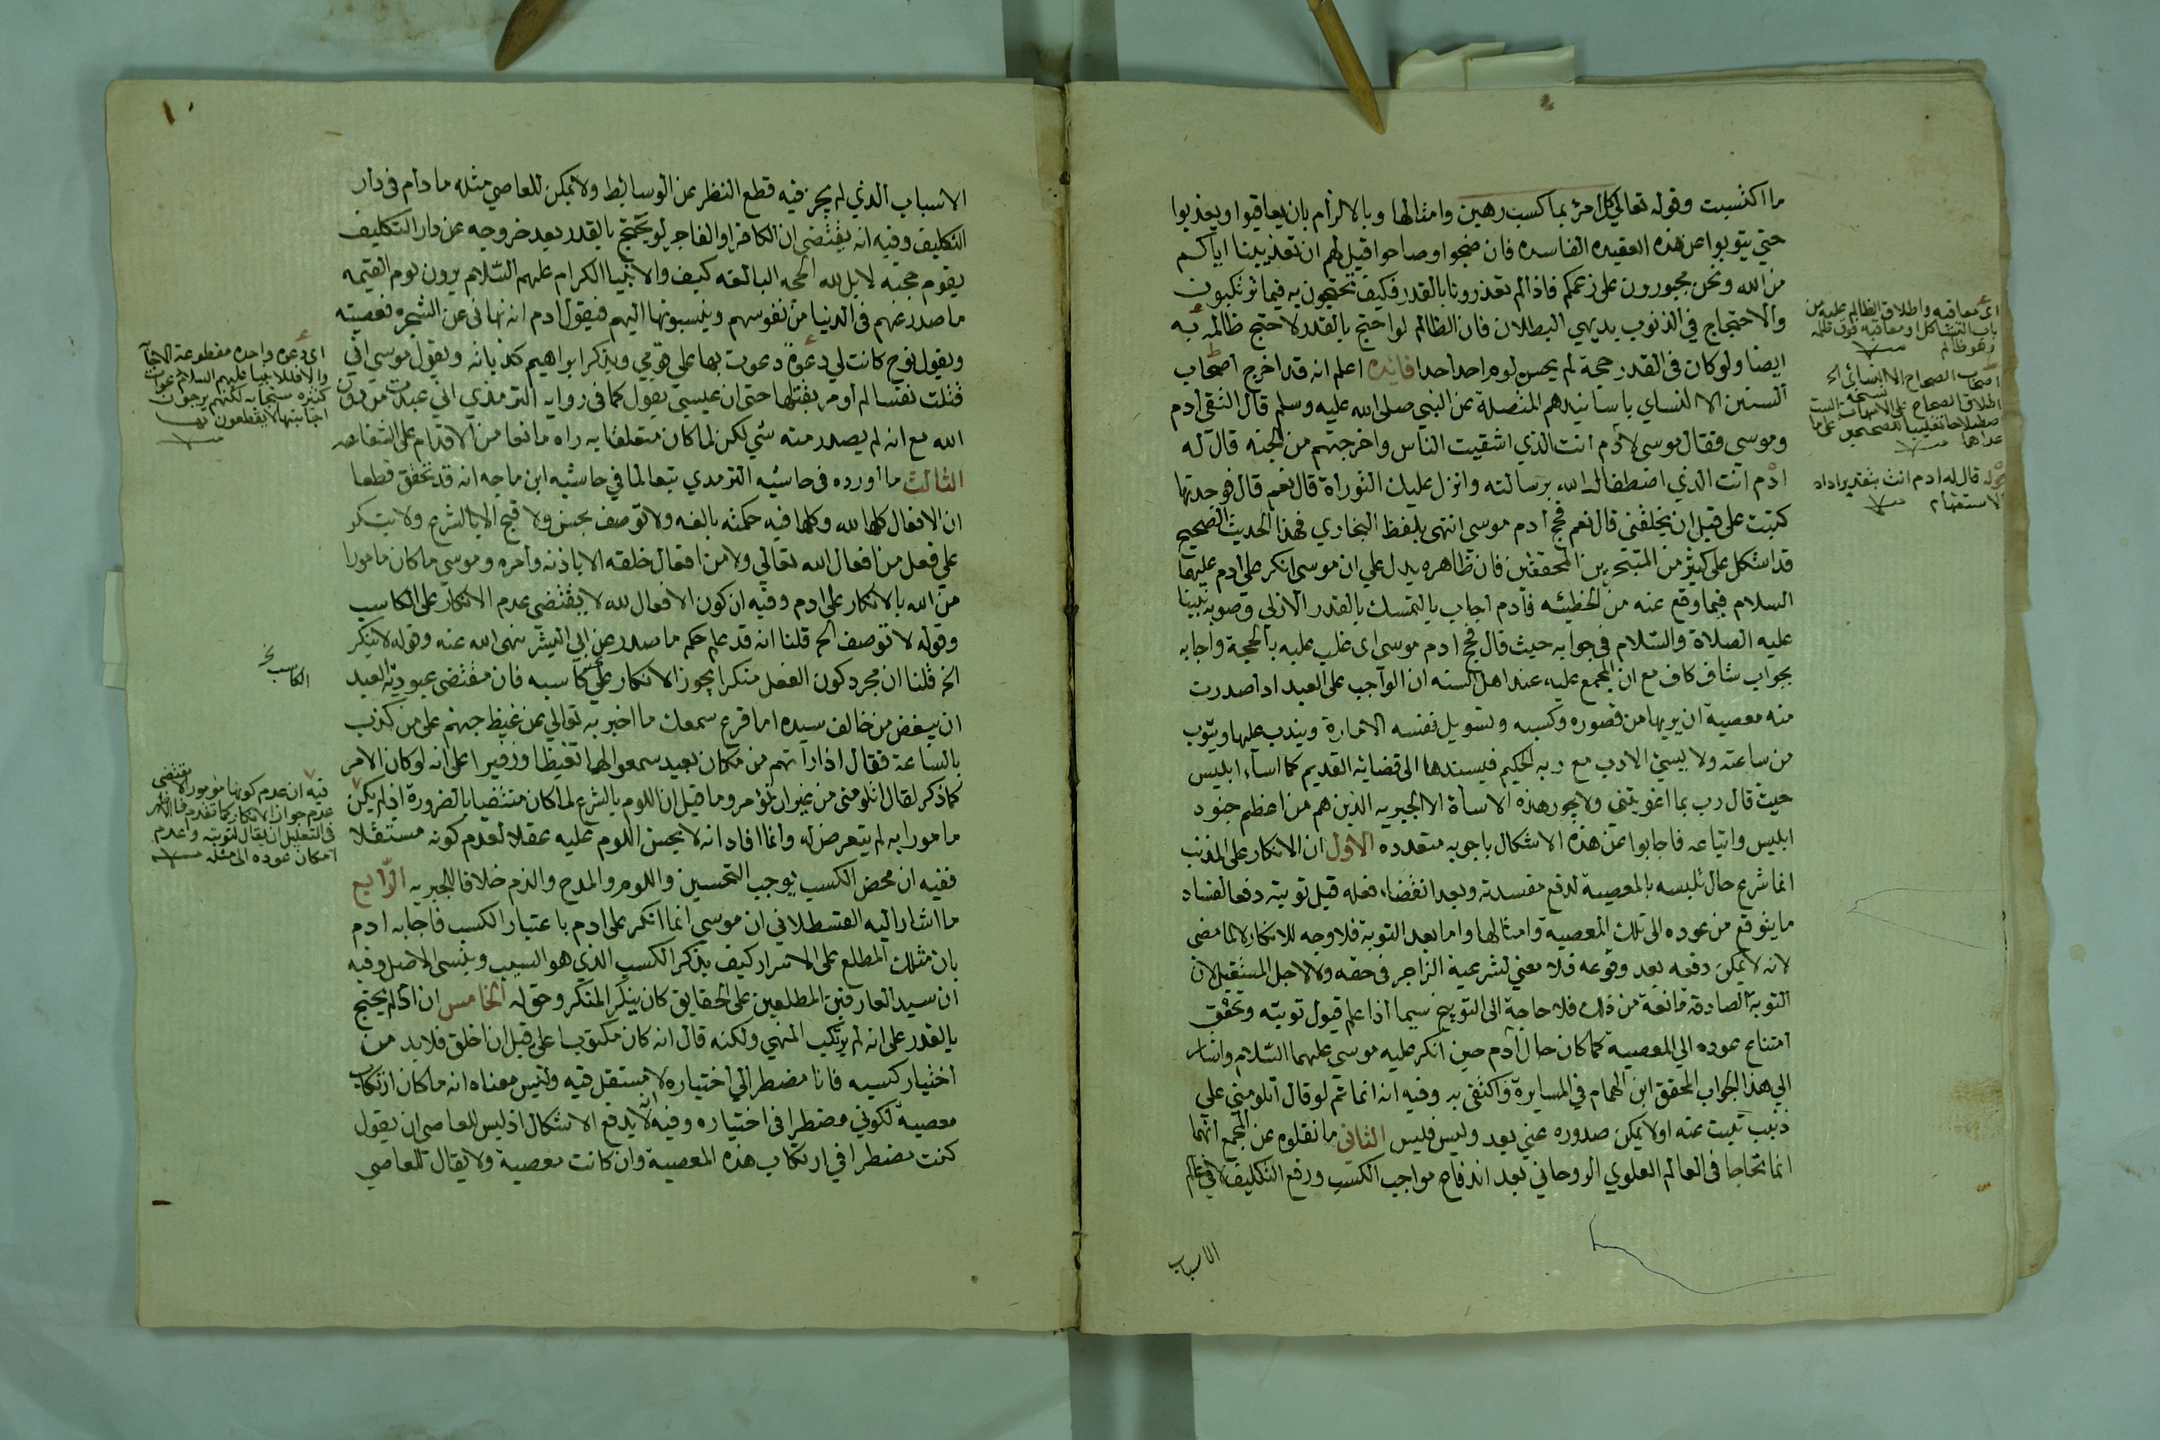 ما اكتسبت وقوله تعالى كل امرئ بما كسب رهين وامثالها وبالالزام بان يعاقبوا ويعذبوا
حتى يتوبوا عن هذه العقيده الفاسده فان ضجوا وصاحوا قيل لهم ان تعذيبنا اياكم
من الله ونحن مجبورون على زعمكم فاذا لم تعذرونا بالقدر فكيف تحتجون به فيما ترتكبون
والاحتجاج في الذنوب بديهي البطلان فان الظالم لو احتج بالقدر لاحتج ظالمه به
ايضا ولو كان في القدر حجة لم يحسن لوم احد احدا فائده اعلم انه قد اخرج اصحاب
السنن الا النساي باسانيدهم المتصلة عن النبي صلى الله عليه وسلم قال التقى ادم
وموسى فقال موسى لادم انت الذي اشقيت الناس واخرجتهم من الجنه قال له
ادم انت الذي اصطفاك الله برسالته وانزل عليك التوراة قال نعم قال فوجدتها
كتبت علي قبل ان يخلقني قال نعم فحج ادم موسى انتهى بلفظ البخاري فهذا الحديث الصحيح
قد اشكل على كثير من المتبحرين المحققين فان ظاهره يدل على ان موسى انكر على ادم عليهما
السلام فيما وقع عنه من الخطيئه فادم اجاب بالتمسك بالقدر الازلي وصوبه نبينا
عليه الصلاة والسلام في جوابه حيث قال فحج ادم موسى اى غلب عليه بالحجة واجابه
بجواب شاف كاف مع ان المجمع عليه عند اهل السنه ان الواجب على العبد اذا صدرت
منه معصية ان يريها من قصوره وكسبه وتسويل نفسه الامارة ويندب عليها ويتوب
من ساعته ولا يسيئ الادب مع ربه الحكيم فيسندها الى قضائه القديم كما اساء ابليس
حيث قال رب بما اغويتني ولا يجوز هذه الاساءة الا الجبريه الذين هم من اعظم جنود
ابليس واتباعه فاجابوا عن هذه الاشكال باجوبه متعدده الاول ان الانكار على المذنب
انما شرع حال تلبسه بالمعصية لدفع مفسدته وبعد انقضاء فعله قبل توبته دفعا لفساد
ما يتوقع من عوده الى تلك المعصية وامثالها واما بعد التوبة فلا وجه للانكار لا لما مضى
لانه لا يمكن دفعه بعد وقوعه فلا معنى لشرعية الزاجر في حقه ولا لاجل المستقبل لان
التوبة الصادقة مانعة من ذلك فلا حاجة الى التوبيخ سيما اذا علم قبول توبته وتحقق
امتناع عوده الي المعصيه كما كان حال ادم حين انكر عليه موسى عليهما السلام واشار
الي هذا الجواب المحقق ابن الهمام في المسايرة واكتفى به وفيه انه انما تم لو قال اتلومني على
ذنب تبت عنه او لا يمكن صدوره عني بعد وليس فليس الثاني ما نقلوه عن المجمع انهما
انما تحاجا في العالم العلوي الروحاني بعد اندفاع مواجب الكسب ورفع التكليف لا في عالم
الاسباب
اى معاقبه واطلاق الظالم عليه من
باب التشاكل او معاقبه فوق ظلمه
فهو ظالم
اصحاب الصحاح الا النسائي الخ
نسخه
قوله قال له ادم انت بتقدير اداة
الاستفهام
١٠
الاسباب الذي لم يجز فيه قطع النظر عن الوسائط ولا يمكن للعاصي مثله ما دام في دار
التكليف وفيه انه يقتضى ان الكافر او الفاجر لو يحتج بالقدر بعد خروجه عن دار التكليف
يقوم حجته لا بل لله الحجه البالغه كيف والانبيا الكرام عليهم السلام يرون يوم القيمه
ما صدر عنهم في الدنيا من نفوسهم وينسبونها اليهم فيقول ادم انه نهاني عن الشجره فعصيته
ويقول نوح كانت لي دعوة دعوت بها على قومي ويذكر ابراهيم كذباته ويقول موسى اني
قتلت نفسا لم اومر بقتلها حتى ان عيسى يقول كما في رواية الترمذي اني عبدت من دون
الله مع انه لم يصدر منه شي لكن لما كان متعلقا به راه مانعا من الاقدام على الشفاعه
الثالث ما اورده في حاشيه الترمدي تبعا لما في حاشيه ابن ماجه انه قد تحقق قطعا
ان الافعال كلها لله وكلها فيه حكمته بالغه ولا توصف بحسن ولا قبح الا بالشرع ولا ينكر
علي فعل من افعال الله تعالي ولا من افعال خلقه الا باذنه وامره وموسى ما كان مامورا
من الله بالانكار على ادم وفيه ان كون الافعال لله لا يقتضى عدم الانكار على الكاسب
وقوله لا توصف الخ قلنا انه قد علم حكم ما صدر عن ابي البشر نهى الله عنه وقوله لا ينكر
الخ قلنا ان مجرد كون الفعل منكرا يجوز الانكار على كاسبه فان مقتضى عبودية العبد
ان يبغض من خالف سيده اما قرع سمعك ما اخبر به تعالي عن غيظ جهنم على من كذب
بالساعة فقال اذا راتهم من مكان بعيد سمعوا لها تغيظا وزفيرا على انه لو كان الامر
كما ذكر لقال اتلومني من غير ان تؤمر وما قيل ان اللوم بالشرع لما كان منتفيا بالضرورة اذ لم يكن
مامورا به لم يتعرض له وانما افاد انه لا يحسن اللوم عليه عقلا لعدم كونه مستقلا
ففيه ان محض الكسب يوجب التحسين واللوم والمدح والذم خلافا للجبريه الرابع
ما اشار اليه القسطلاني ان موسى انما انكر على ادم باعتبار الكسب فاجابه ادم
بان مثلك المطلع على الاسرار كيف يذكر الكسب الذي هو السبب وينسى الاصل وفيه
ان سيد العارفين المطلعين على الحقايق كان ينكر المنكر وحق له الخامس ان ادم لم يحتج
بالقدر على انه لم يرتكب المنهي ولكنه قال انه كان مكتوبا علي قبل ان اخلق فلابد من
اختيار كسبه فانا مضطر الي اختياره لا مستقل فيه وليس معناه انه ما كان ارتكاب
معصية لكوني مضطرا في اختياره وفيه انه لا يدفع الاشكال اذ ليس للعاصى ان يقول
كنت مضطرا في ارتكاب هذه المعصية وان كانت معصية ولا يقال للعاصي
اى دعوة واحده مقطوعة الاجابة
والا فللانبيا عليهم السلام دعوات
كثيره مستجابه لكنهم يرجون
اجابتها لا يقطعون بها
الكاسب نخ
فيه ان عدم كونها مامورا لا يقتضى
عدم جواز الانكار كما تقدم فالاظهر
في التعليل ان يقال لتوبته وعدم
امكان عوده الى مثله